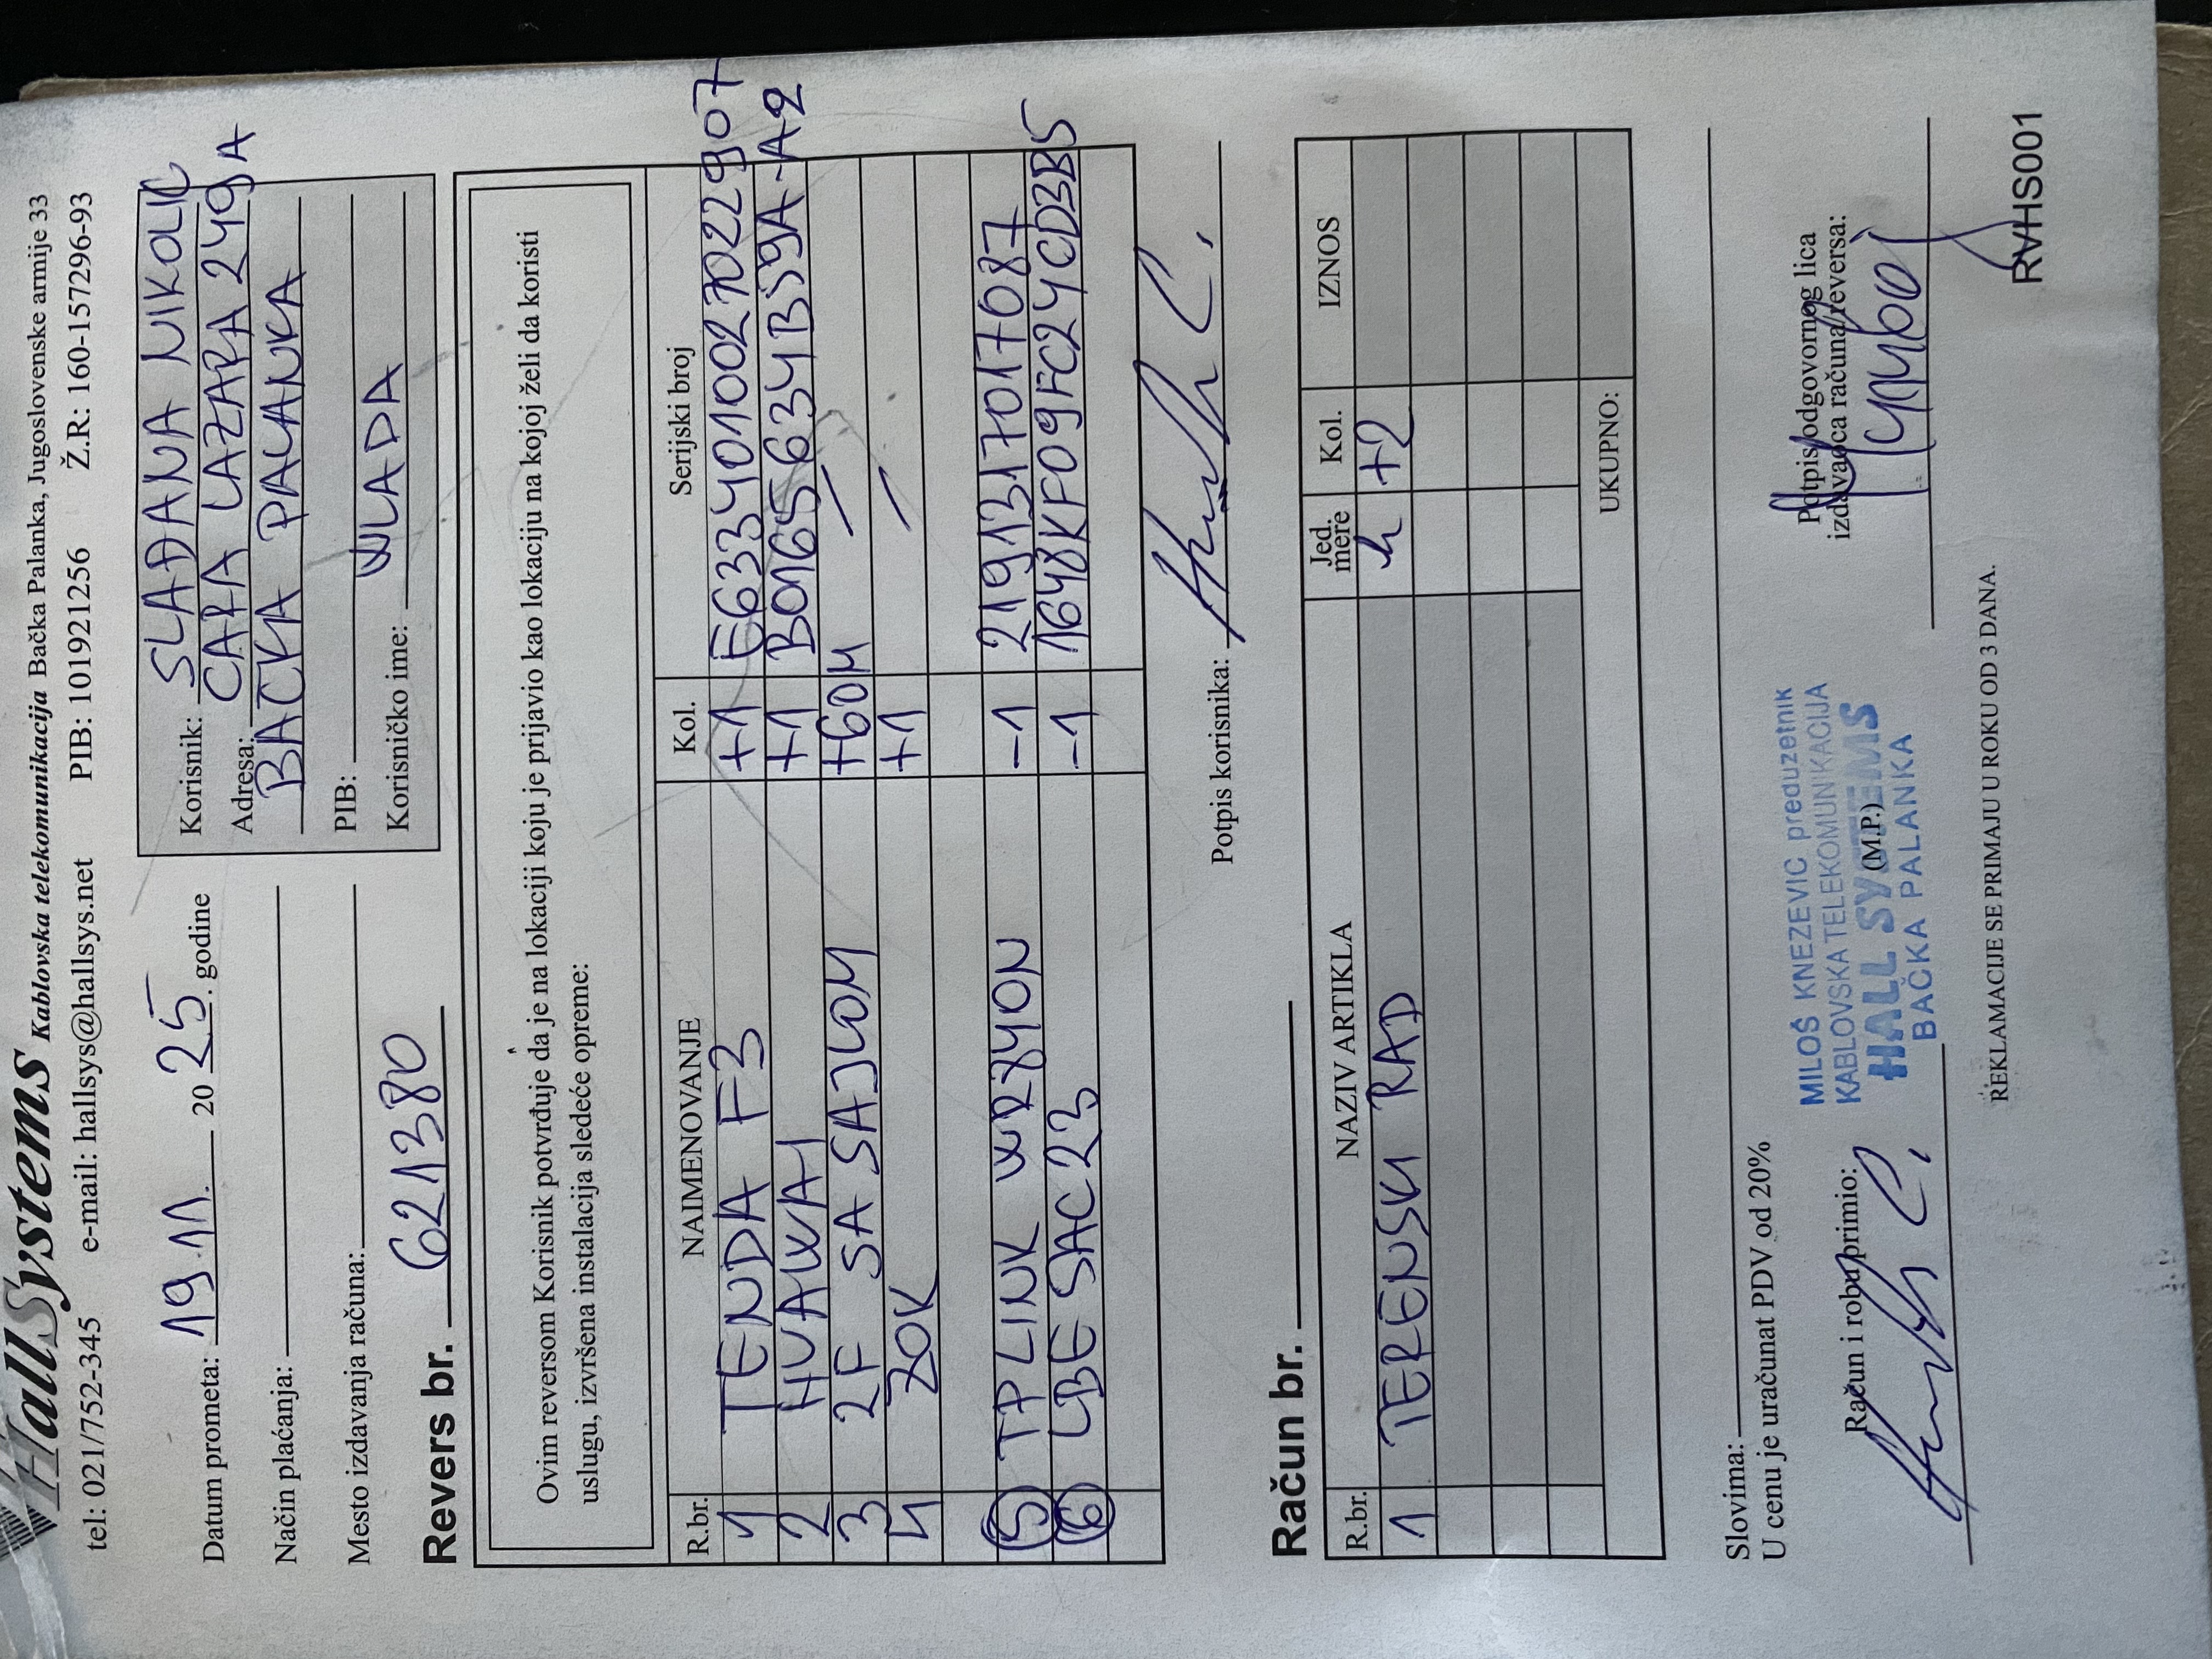 HallSystems Kablovska telekomunikacija Bačka Palanka, Jugoslovenske armije 33
tel: 021/752-345 e-mail: hallsys@hallsys.net PIB: 101921256 Ž.R: 160-157296-93
Datum prometa: 19.11. 20 25. godine
Način plaćanja:
Mesto izdavanja računa:
Korisnik: SLAĐANA NIKOLIĆ
Adresa: CARA LAZARA 249A
BAČKA PALANKA
PIB:
Korisničko ime: WLADA
Revers br. 621380
Ovim reversom Korisnik potvrđuje da je na lokaciji koju je prijavio kao lokaciju na kojoj želi da koristi
uslugu, izvršena instalacija sledeće opreme:
R.br. NAIMENOVANJE Kol. Serijski broj
1 TENDA F3 +1 E6334010027022907
2 HUAWAI +1 B0165634B59A-A2
3 2F SA SAJLOM +60M —
4 ZOK +1 —
5 TP LINK WR840N -1 2191317017687
6 LBE 5AC 23 -1 1648KF09FC24CD3B5
Potpis korisnika:
Račun br.
R.br. NAZIV ARTIKLA Jed. mere Kol. IZNOS
1 TERENSKI RAD h +2
UKUPNO:
Slovima:
U cenu je uračunat PDV od 20%
Račun i robu primio:
MILOŠ KNEZEVIC preduzetnik
KABLOVSKA TELEKOMUNIKACIJA
HALL SYSTEMS
(M.P.)
BAČKA PALANKA
Potpis odgovornog lica
izdavaoca računa/reversa:
REKLAMACIJE SE PRIMAJU U ROKU OD 3 DANA.
RVHS001